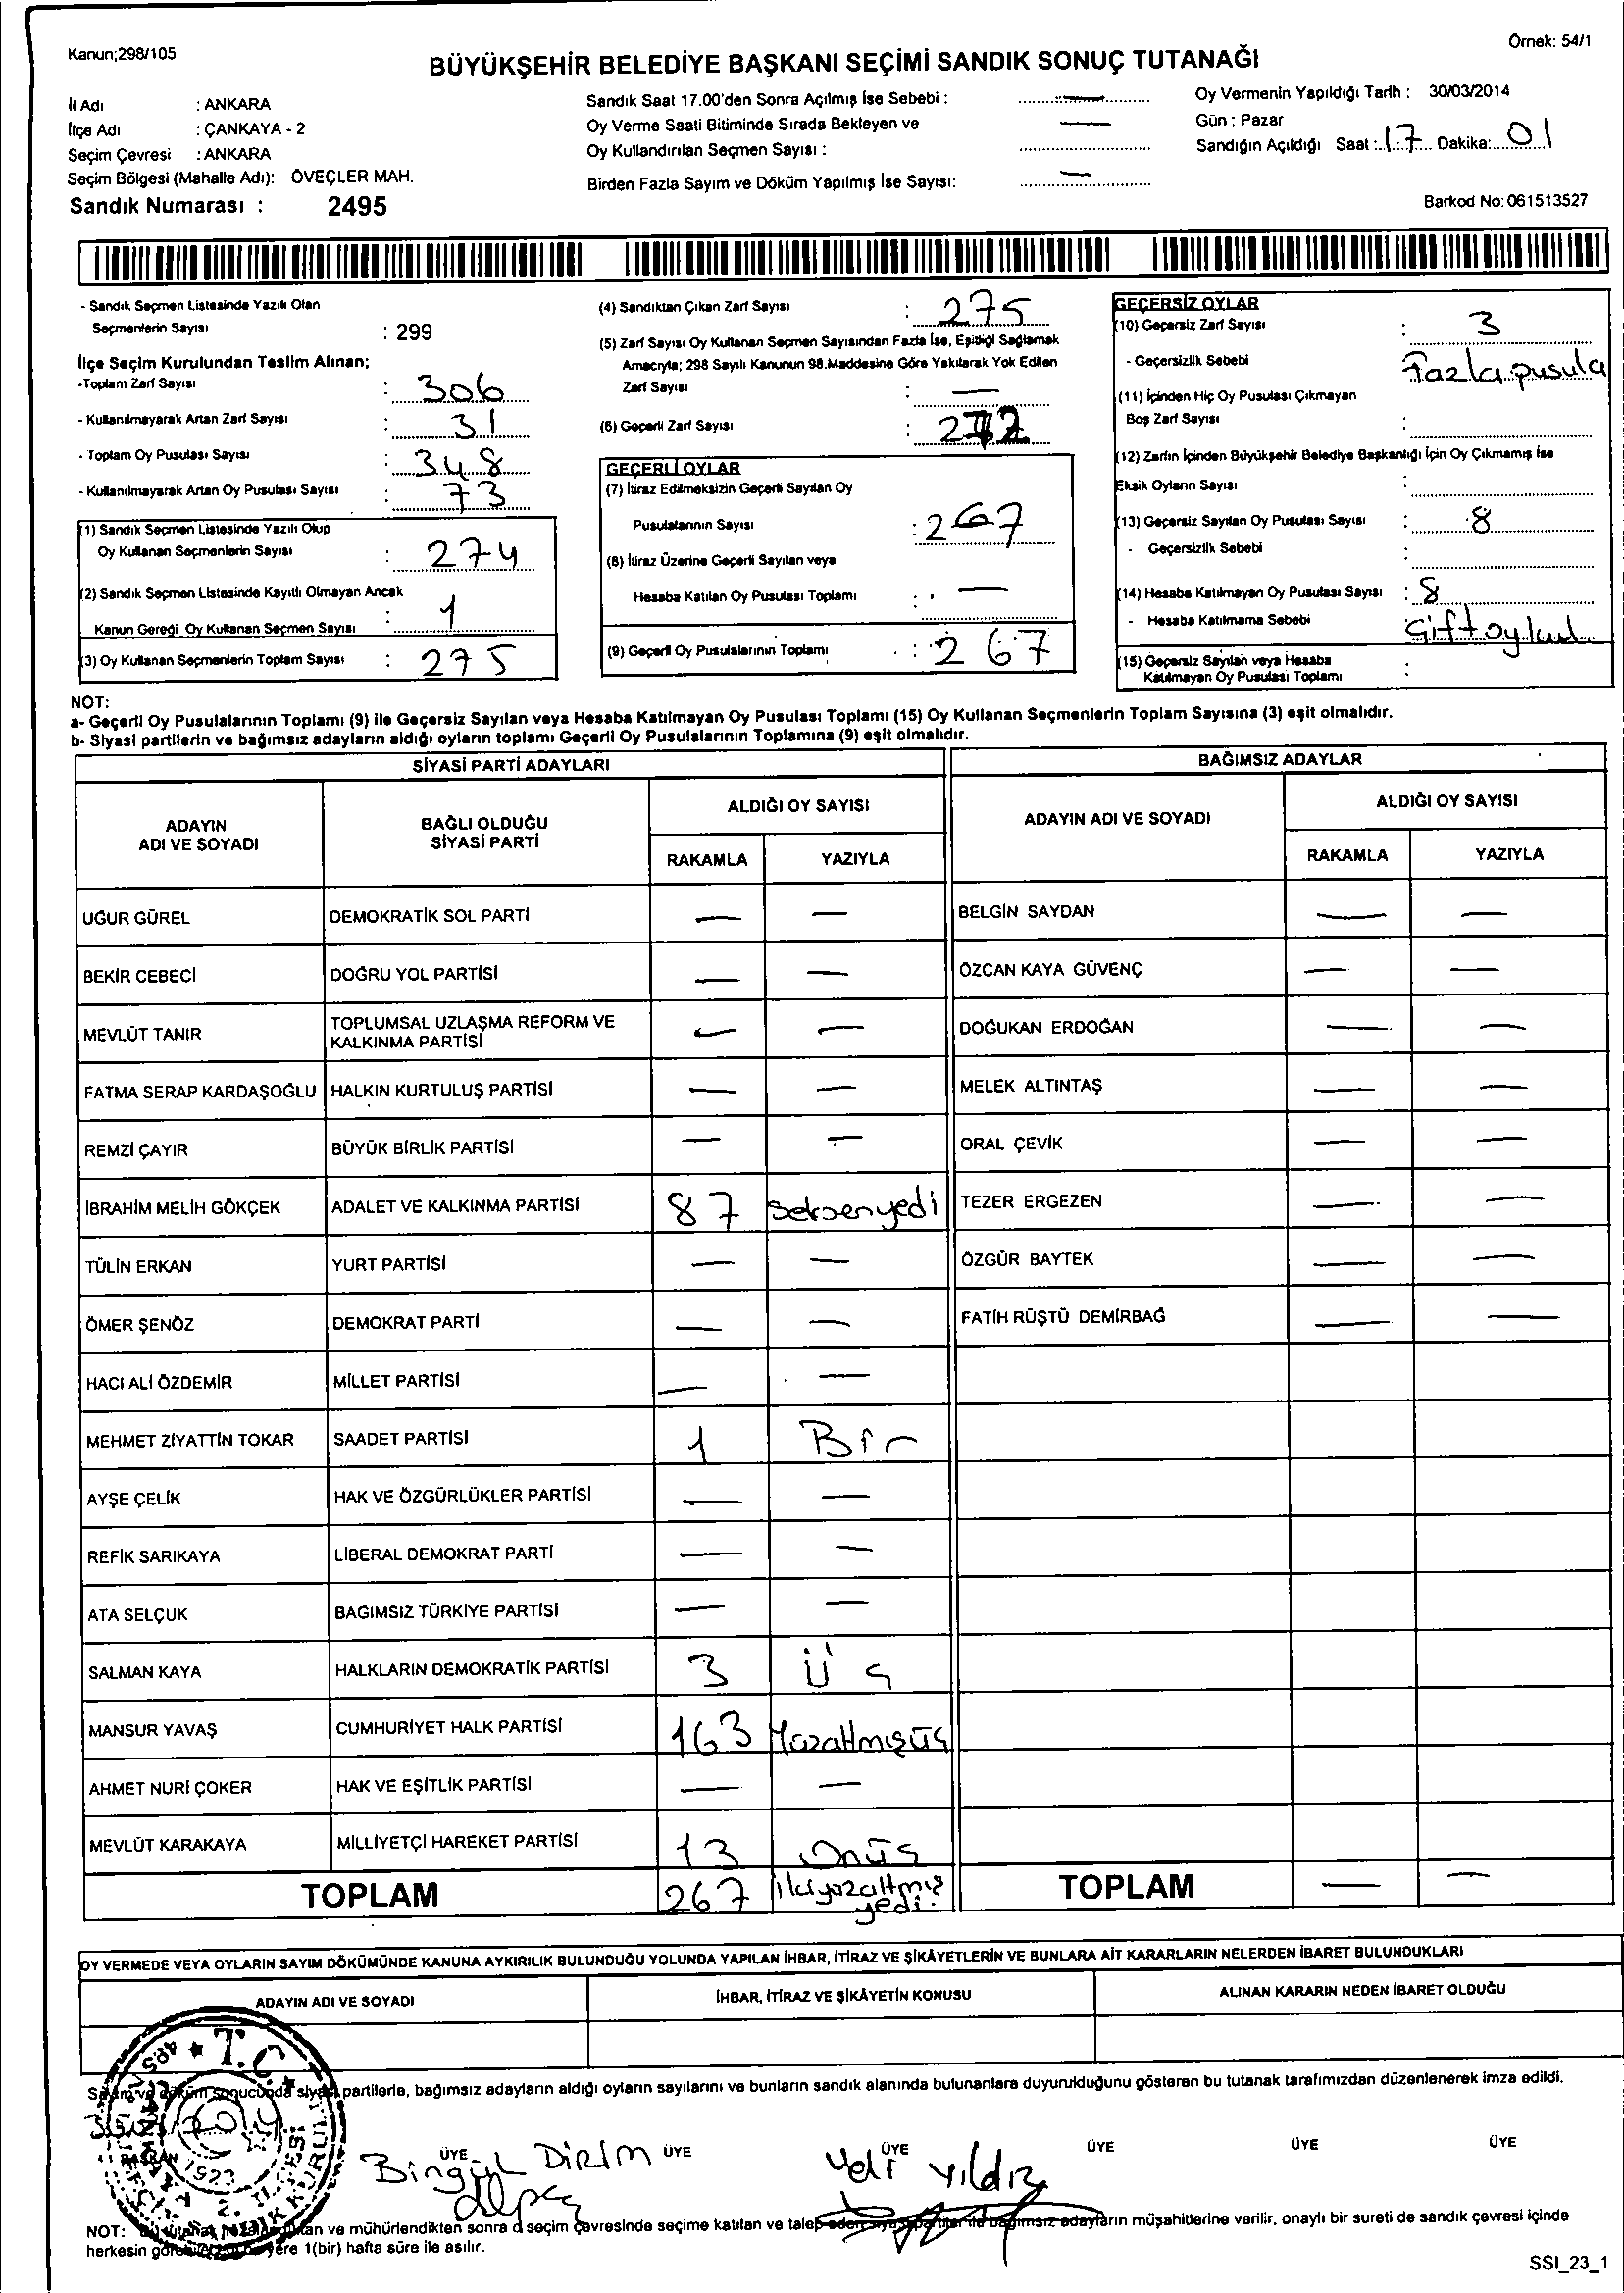 Kanun;298/105
Örnek: 54/1
BÜYÜKŞEHİR BELEDİYE BAŞKANI SEÇİMİ SANDIK SONUÇ TUTANAĞI
İl Adı : ANKARA
İlçe Adı : ÇANKAYA - 2
Seçim Çevresi : ANKARA
Seçim Bölgesi (Mahalle Adı): ÖVEÇLER MAH.
Sandık Numarası : 2495
Sandık Saat 17.00'den Sonra Açılmış İse Sebebi : —
Oy Verme Saati Bitiminde Sırada Bekleyen ve —
Oy Kullandırılan Seçmen Sayısı :
Birden Fazla Sayım ve Döküm Yapılmış İse Sayısı: —
Oy Vermenin Yapıldığı Tarih : 30/03/2014
Gün : Pazar
Sandığın Açıldığı Saat : 17 Dakika: 01
Barkod No: 061513527
- Sandık Seçmen Listesinde Yazılı Olan
Seçmenlerin Sayısı : 299
İlçe Seçim Kurulundan Teslim Alınan;
-Toplam Zarf Sayısı : 306
- Kullanılmayarak Artan Zarf Sayısı : 31
- Toplam Oy Pusulası Sayısı : 348
- Kullanılmayarak Artan Oy Pusulası Sayısı : 73
(1) Sandık Seçmen Listesinde Yazılı Olup
Oy Kullanan Seçmenlerin Sayısı : 274
(2) Sandık Seçmen Listesinde Kayıtlı Olmayan Ancak
Kanun Gereği Oy Kullanan Seçmen Sayısı : 1
(3) Oy Kullanan Seçmenlerin Toplam Sayısı : 275
(4) Sandıktan Çıkan Zarf Sayısı : 275
(5) Zarf Sayısı Oy Kullanan Seçmen Sayısından Fazla İse, Eşitliği Sağlamak
Amacıyla; 298 Sayılı Kanunun 98.Maddesine Göre Yakılarak Yok Edilen
Zarf Sayısı : —
(6) Geçerli Zarf Sayısı : 272
GEÇERLİ OYLAR
(7) İtiraz Edilmeksizin Geçerli Sayılan Oy
Pusulalarının Sayısı : 267
(8) İtiraz Üzerine Geçerli Sayılan veya
Hesaba Katılan Oy Pusulası Toplamı : —
(9) Geçerli Oy Pusulalarının Toplamı : 267
GEÇERSİZ OYLAR
(10) Geçersiz Zarf Sayısı : 3
- Geçersizlik Sebebi : Fazla pusula
(11) İçinden Hiç Oy Pusulası Çıkmayan
Boş Zarf Sayısı :
(12) Zarfın İçinden Büyükşehir Belediye Başkanlığı İçin Oy Çıkmamış İse
Eksik Oyların Sayısı :
(13) Geçersiz Sayılan Oy Pusulası Sayısı : 8
- Geçersizlik Sebebi :
(14) Hesaba Katılmayan Oy Pusulası Sayısı : 8
- Hesaba Katılmama Sebebi
(15) Geçersiz Sayılan veya Hesaba
Katılmayan Oy Pusulası Toplamı :
NOT:
a- Geçerli Oy Pusulalarının Toplamı (9) ile Geçersiz Sayılan veya Hesaba Katılmayan Oy Pusulası Toplamı (15) Oy Kullanan Seçmenlerin Toplam Sayısına (3) eşit olmalıdır.
b- Siyasi partilerin ve bağımsız adayların aldığı oyların toplamı Geçerli Oy Pusulalarının Toplamına (9) eşit olmalıdır.
SİYASİ PARTİ ADAYLARI
ADAYIN ADI VE SOYADI
BAĞLI OLDUĞU SİYASİ PARTİ
ALDIĞI OY SAYISI
RAKAMLA YAZIYLA
UĞUR GÜREL DEMOKRATİK SOL PARTİ — —
BEKİR CEBECİ DOĞRU YOL PARTİSİ — —
MEVLÜT TANIR TOPLUMSAL UZLAŞMA REFORM VE KALKINMA PARTİSİ — —
FATMA SERAP KARDAŞOĞLU HALKIN KURTULUŞ PARTİSİ — —
REMZİ ÇAYIR BÜYÜK BİRLİK PARTİSİ — —
İBRAHİM MELİH GÖKÇEK ADALET VE KALKINMA PARTİSİ 87 Seksenyedi
TÜLİN ERKAN YURT PARTİSİ — —
ÖMER ŞENÖZ DEMOKRAT PARTİ — —
HACI ALİ ÖZDEMİR MİLLET PARTİSİ — —
MEHMET ZİYATTİN TOKAR SAADET PARTİSİ 1 Bir
AYŞE ÇELİK HAK VE ÖZGÜRLÜKLER PARTİSİ — —
REFİK SARIKAYA LİBERAL DEMOKRAT PARTİ — —
ATA SELÇUK BAĞIMSIZ TÜRKİYE PARTİSİ — —
SALMAN KAYA HALKLARIN DEMOKRATİK PARTİSİ 3 Üç
MANSUR YAVAŞ CUMHURİYET HALK PARTİSİ 163 Yüzaltmışüç
AHMET NURİ ÇOKER HAK VE EŞİTLİK PARTİSİ — —
MEVLÜT KARAKAYA MİLLİYETÇİ HAREKET PARTİSİ 13 Onüç
TOPLAM 267 ikiyüzaltmış yedi.
BAĞIMSIZ ADAYLAR
ADAYIN ADI VE SOYADI
ALDIĞI OY SAYISI
RAKAMLA YAZIYLA
BELGİN SAYDAN — —
ÖZCAN KAYA GÜVENÇ — —
DOĞUKAN ERDOĞAN — —
MELEK ALTINTAŞ — —
ORAL ÇEVİK — —
TEZER ERGEZEN — —
ÖZGÜR BAYTEK — —
FATİH RÜŞTÜ DEMİRBAĞ — —
TOPLAM — —
OY VERMEDE VEYA OYLARIN SAYIM DÖKÜMÜNDE KANUNA AYKIRILIK BULUNDUĞU YOLUNDA YAPILAN İHBAR, İTİRAZ VE ŞİKÂYETLERİN VE BUNLARA AİT KARARLARIN NELERDEN İBARET BULUNDUKLARI
ADAYIN ADI VE SOYADI
İHBAR, İTİRAZ VE ŞİKÂYETİN KONUSU
ALINAN KARARIN NEDEN İBARET OLDUĞU
T.C.
1923
Sayım ve döküm sonucunda siyasi partilerle, bağımsız adayların aldığı oyların sayılarını ve bunların sandık alanında bulunanlara duyurulduğunu gösteren bu tutanak tarafımızdan düzenlenerek imza edildi.
BAŞKAN ÜYE ÜYE ÜYE ÜYE ÜYE ÜYE
Bingül DİRİM
Yıldız
NOT: Bu tutanak ve mühürlendikten sonra seçim çevresinde seçime katılan ve talep eden siyasi partiler ile bağımsız adayların müşahitlerine verilir, onaylı bir sureti de sandık çevresi içinde
herkesin yere 1(bir) hafta süre ile asılır.
SSI_23_1